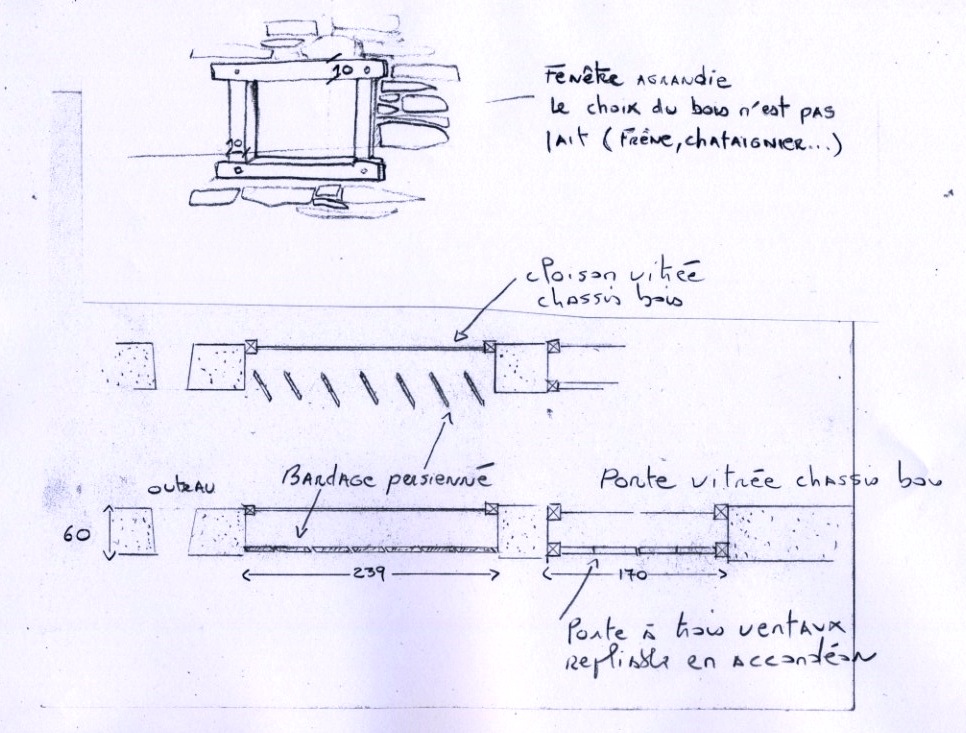 10
10
Fenêtre AGRANDIE
le choix du bois n'est pas
fait (Frêne, chataignier...)
cloison vitrée
chassis bois
Bardage persienné
outeau
Porte vitrée chassis bois
60
239
170
Porte à trois ventaux
repliable en accordéon